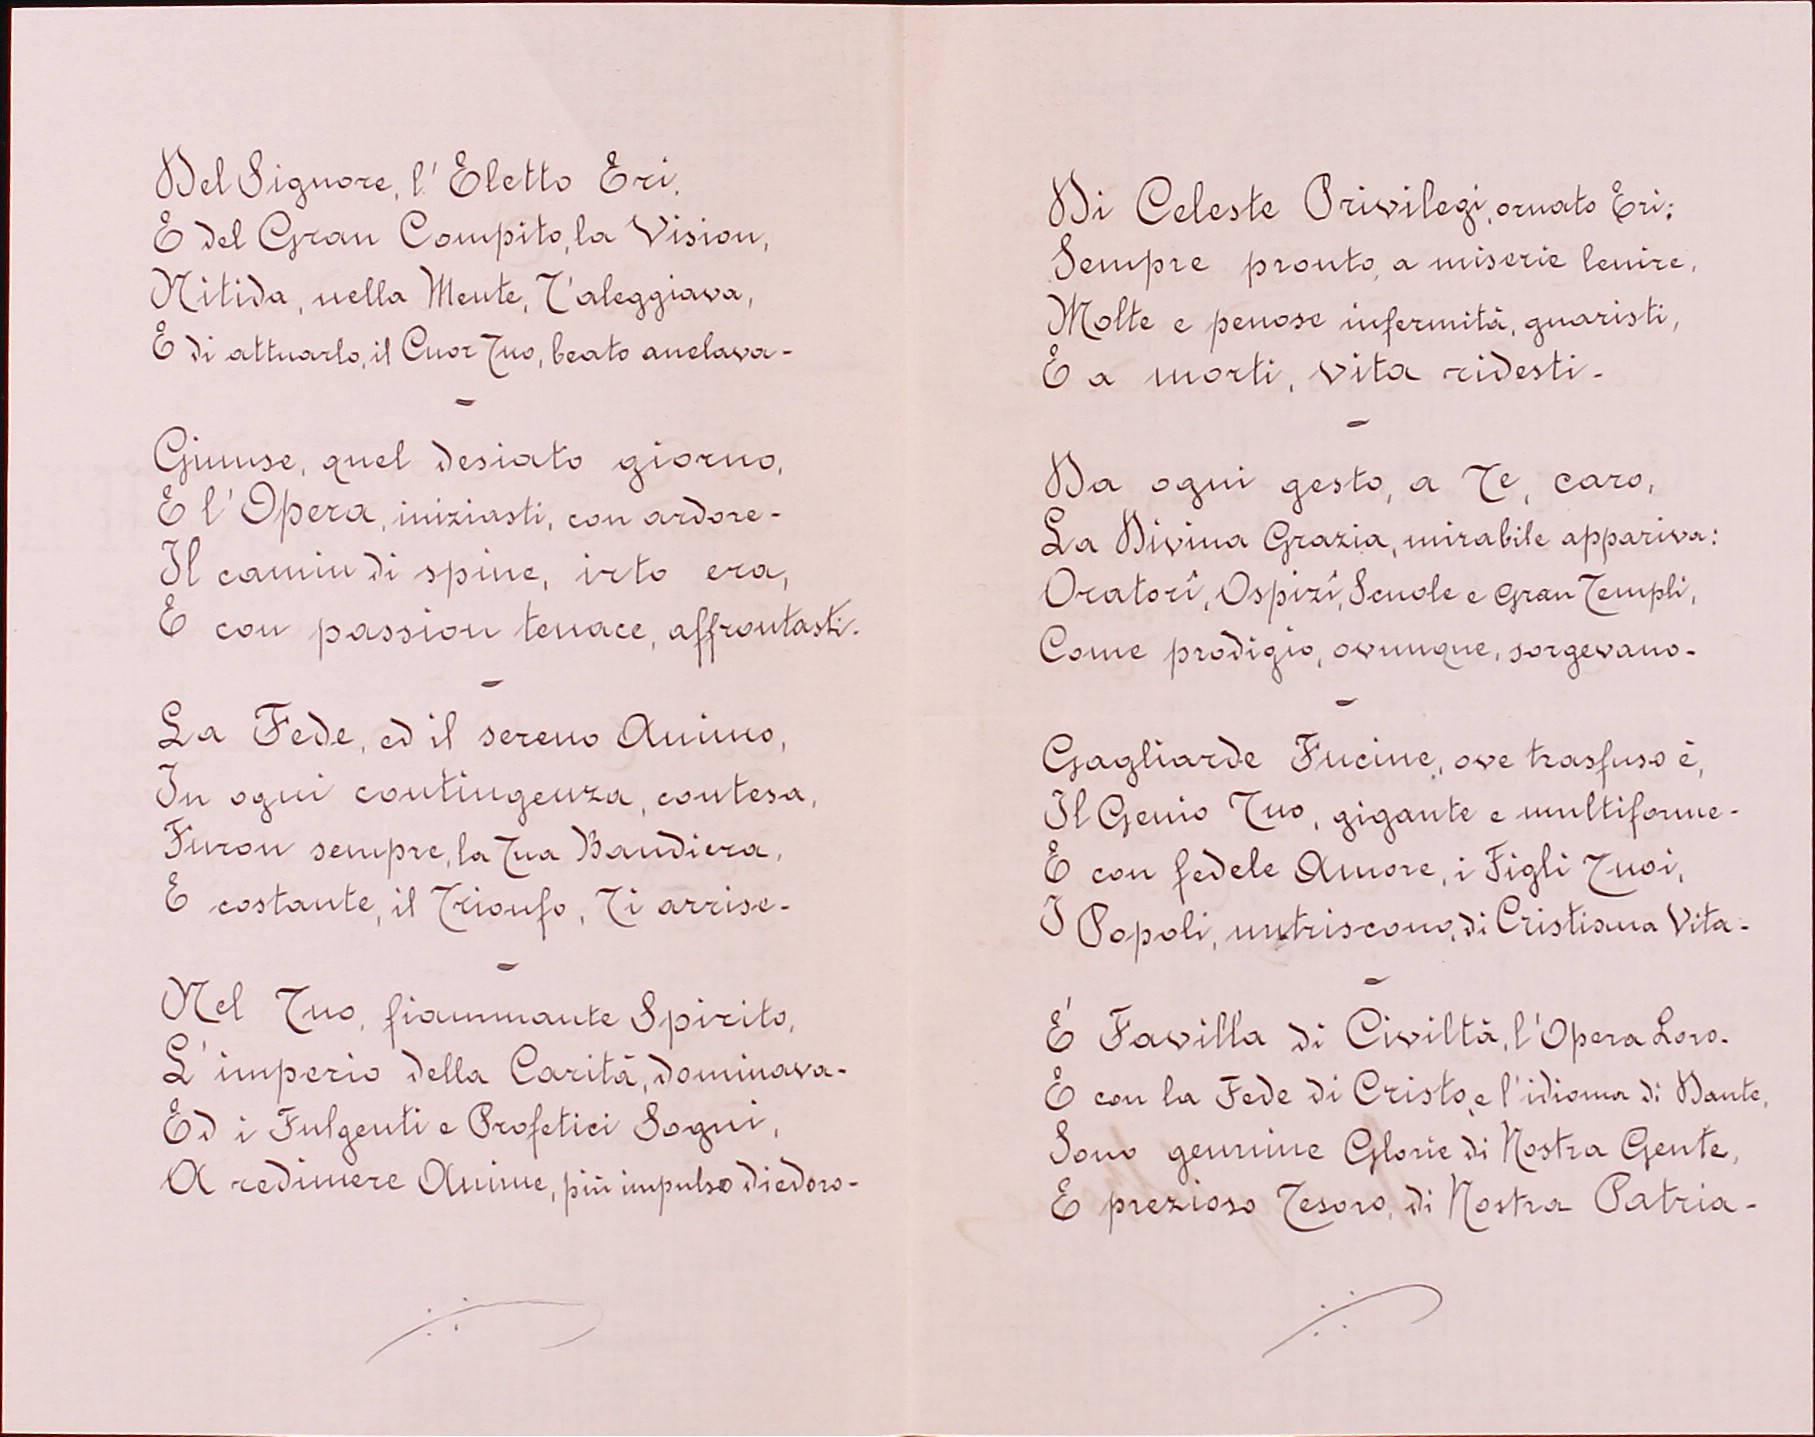 Del Signore, l'Eletto Eri,
E del Gran Compito, la Vision,
Nitida, nella Mente, T'aleggiava,
E di attuarlo, il Cuor Tuo, beato anelava-
-
Giunse, quel desiato giorno,
E l'Opera, iniziasti, con ardore-
Il camin di spine, irto era,
E con passion tenace, affrontasti.
-
La Fede, ed il sereno Animo,
In ogni contingenza, contesa,
Furon sempre, la Tua Bandiera,
E costante, il Trionfo, Ti arrise-
-
Nel Tuo, fiammante Spirito,
L'imperio della Carità, dominava-
Ed i Fulgenti e Profetici Sogni,
A redimere Anime, più impulso diedoro-
Di Celeste Privilegi, ornato Eri;
Sempre pronto, a miserie lenire,
Molte e penose infermità, guaristi,
E a morti, vita ridesti-
-
Da ogni gesto, a Te, caro,
La Divina Grazia, mirabile appariva:
Oratorî, Ospizî, Scuole e Gran Templi,
Come prodigio, ovunque, sorgevano-
-
Gagliarde Fucine, ove trasfuso è,
Il Genio Tuo, gigante e multiforme-
E con fedele Amore, i Figli Tuoi,
I Popoli, nutriscono, di Cristiana Vita-
-
E' Favilla di Civiltà, l'Opera Loro-
E con la Fede di Cristo, e l'idioma di Dante,
Sono genuine Glorie di Nostra Gente,
E prezioso Tesoro, di Nostra Patria-